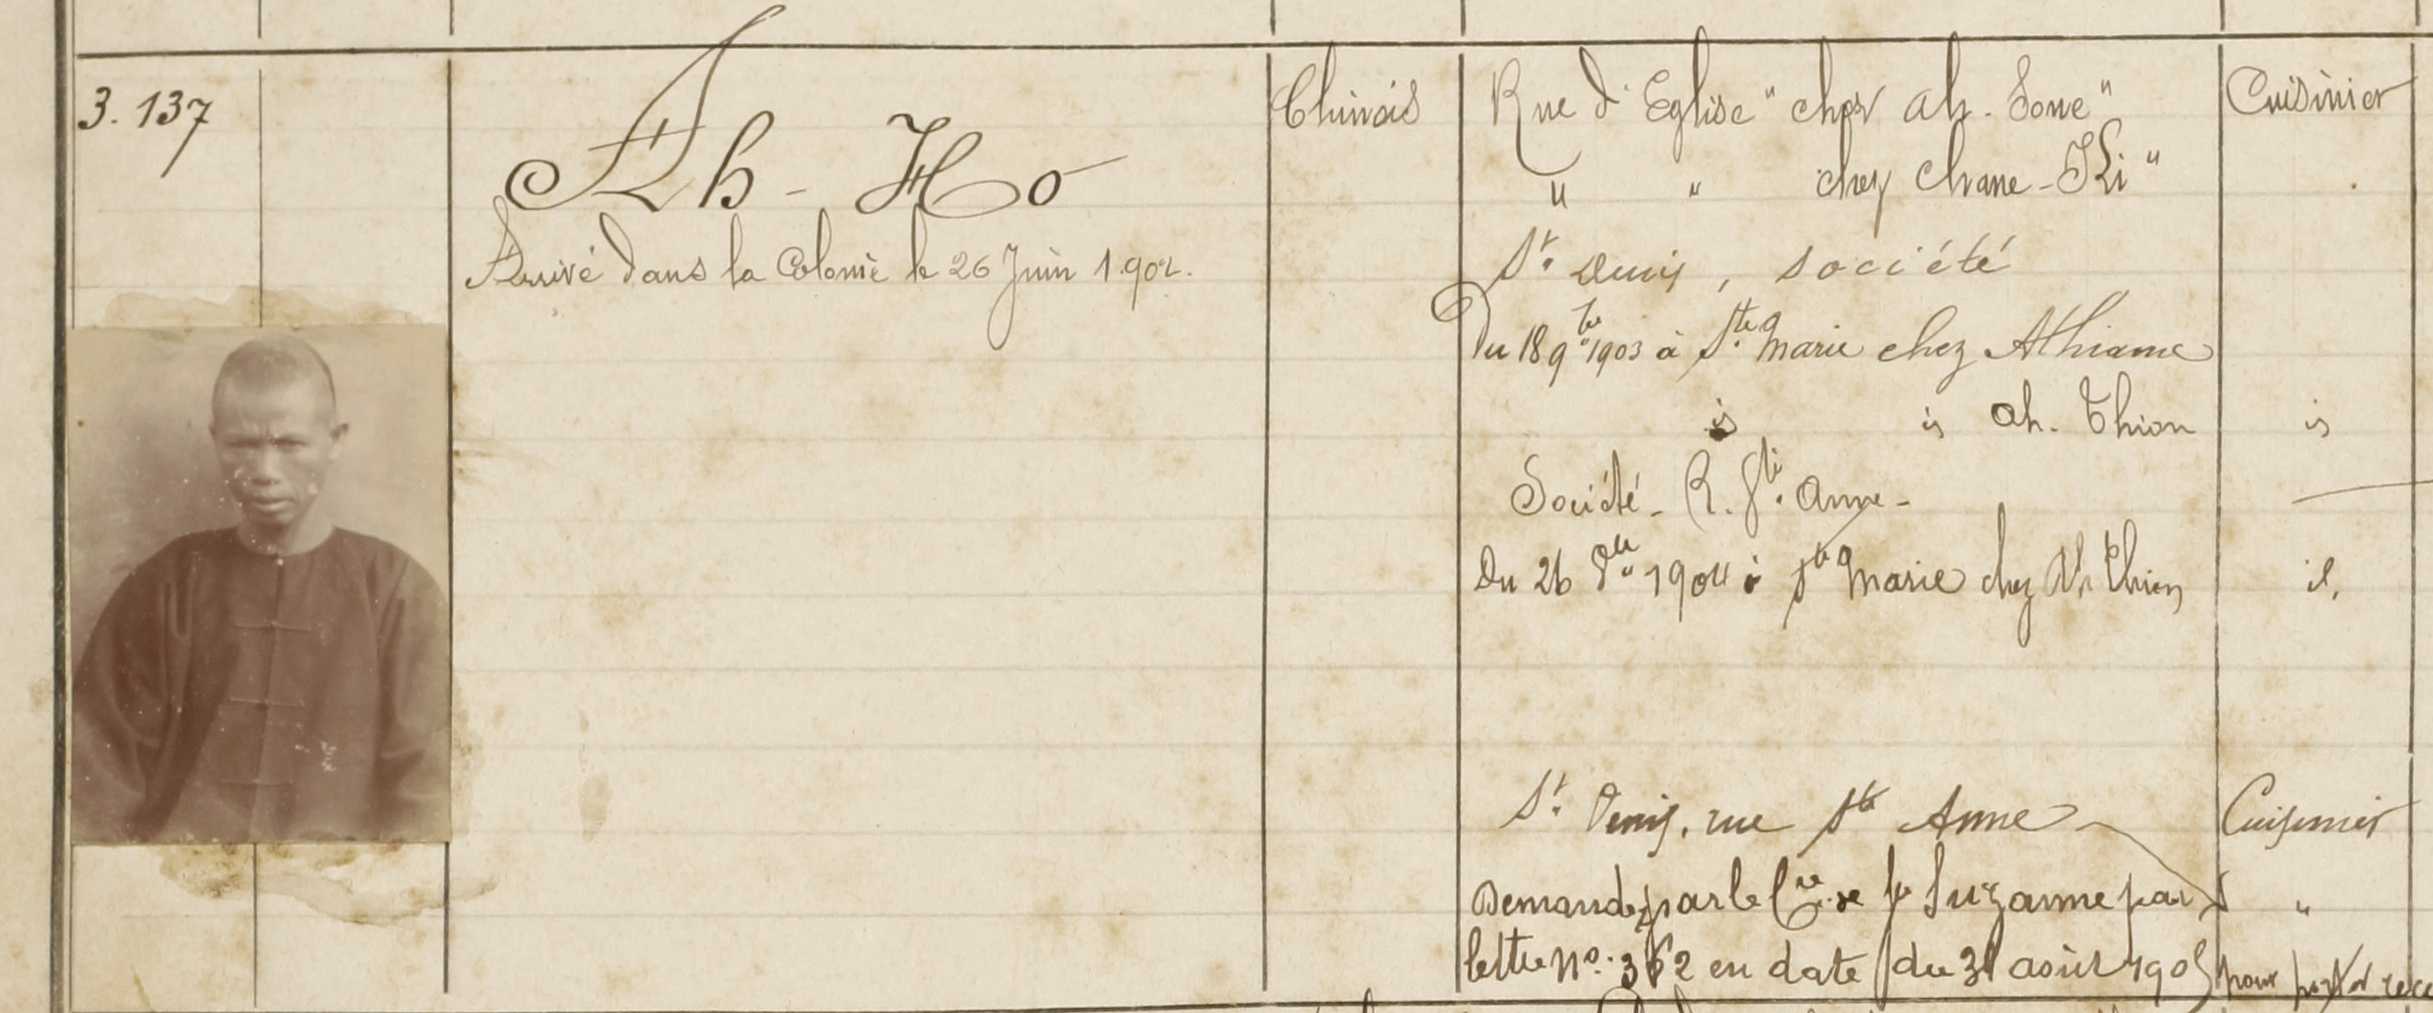 3. 137
Ah - Ho
Arrivé dans la Colonie le 26 Juin 1.902.
Chinois
Rue d'Eglise " chez Ah. Sone "
" " chez Chane - Ki "
St. Denis, société
Du 18 9bre 1903 à Ste. Marie chez Athiame
id id Ah. Thion
Société - R. Ste. Anne -
Du 26 1904 à Ste Marie chez Ah Thion
St. Denis, rue Ste Anne
Demande par le Cre de Ste Suzanne par
lettre No. 362 en date du 31 août 1905 pour
Cuisinier
id
id,
Cuisinier
"